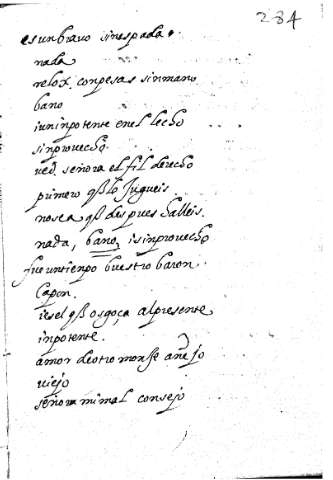 234
es un bravo sin espada
nada
relox con pesas sin mano
bano
i un inpotente en el lecho
sin provecho.
ved señora el fil derecho
primero q̃ lo jugueis
no sea q̃ despues halleis
nada, bano, i sin provecho
fue un tienpo buestro baron
capon.
i es el q̃ os goça al presente
inpotente.
amor de otro monse añejo
viejo
señora mi mal consejo